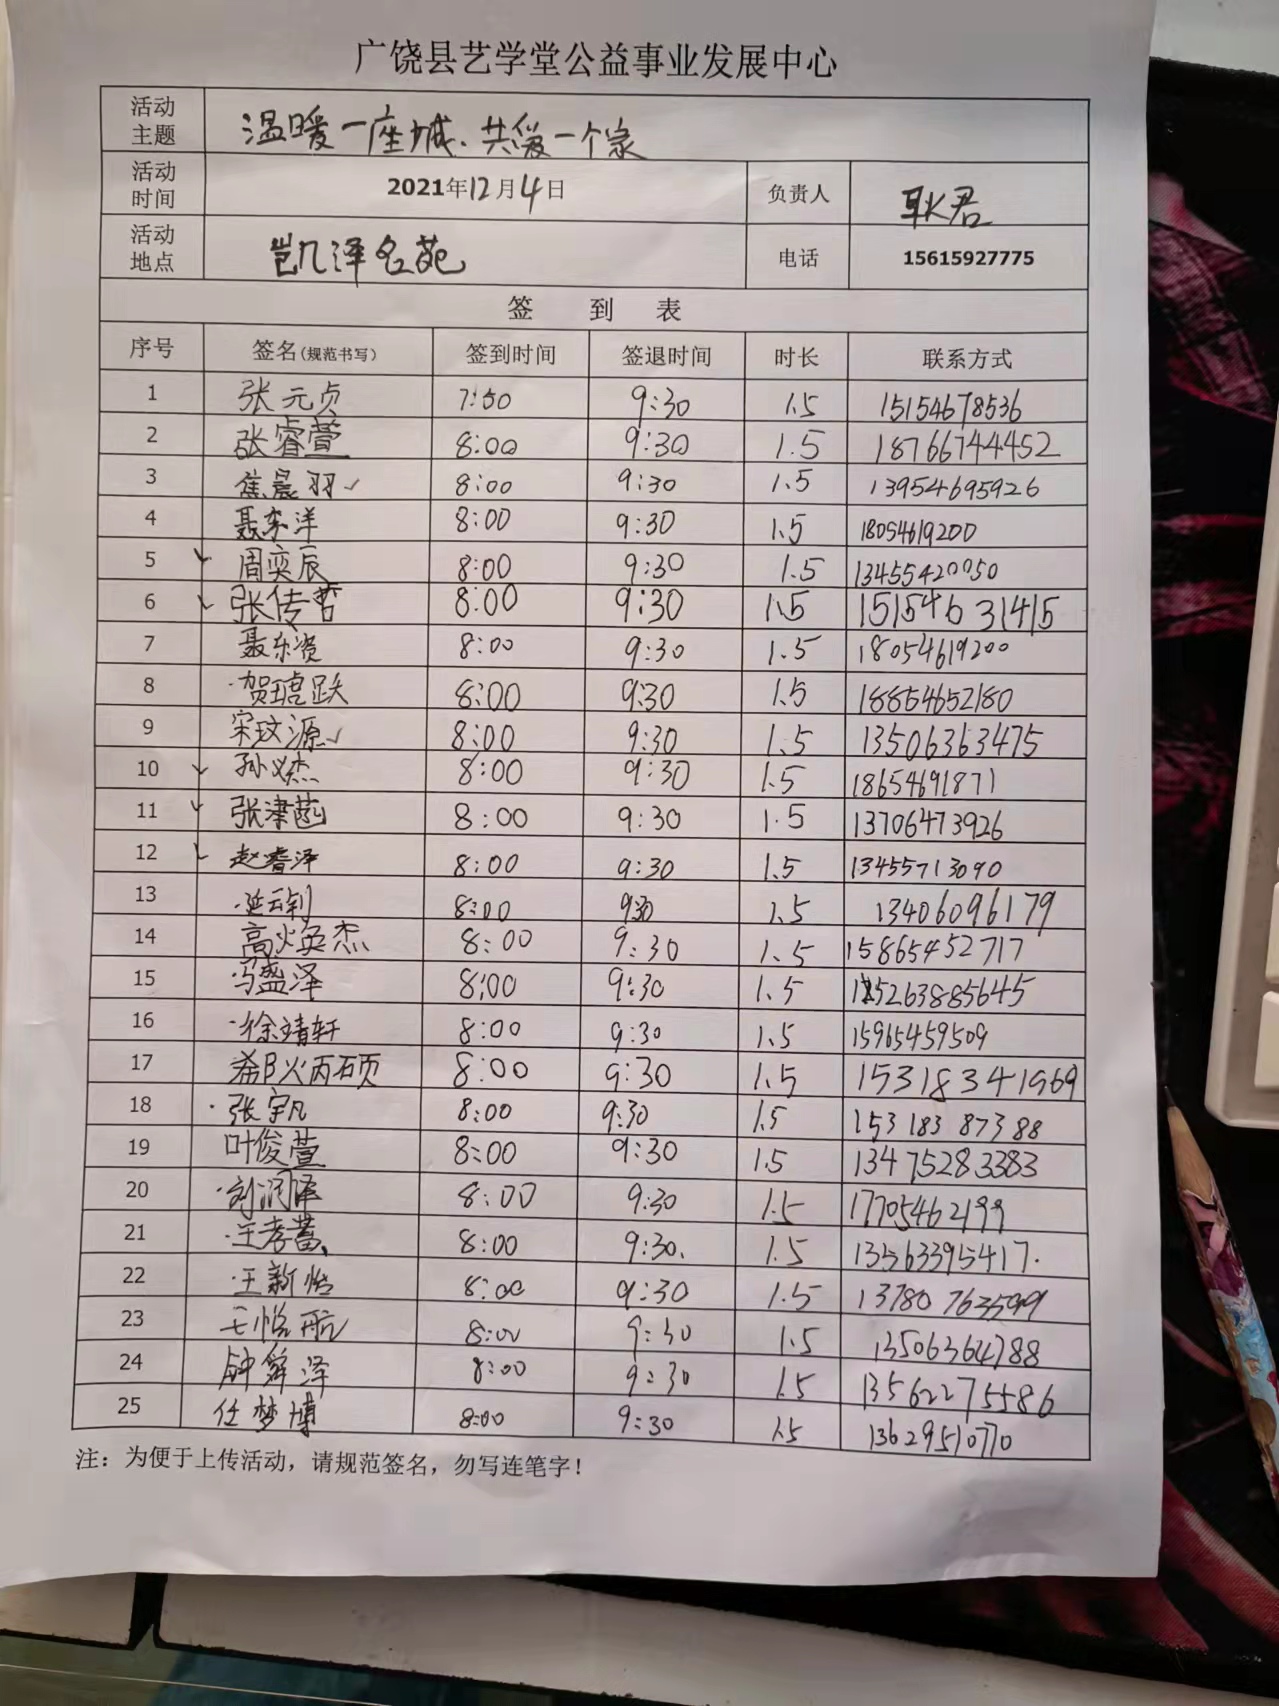 广饶县艺学堂公益事业发展中心
活动主题 温暖一座城、共爱一个家
活动时间 2021年12月4日 负责人 耿君
活动地点 凯泽名苑 电话 15615927775
签 到 表
序号 签名(规范书写) 签到时间 签退时间 时长 联系方式
1 张元贞 7:50 9:30 1.5 15154678536
2 张睿萱 8:00 9:30 1.5 18766744452
3 焦晨羽 8:00 9:30 1.5 13954695926
4 聂东洋 8:00 9:30 1.5 18054619200
5 周奕辰 8:00 9:30 1.5 13455420050
6 张传哲 8:00 9:30 1.5 15154631415
7 聂东资 8:00 9:30 1.5 18054619200
8 贺跃 8:00 9:30 1.5 18854652180
9 宋玟源 8:00 9:30 1.5 13506363475
10 孙义杰 8:00 9:30 1.5 18654691871
11 张津菡 8:00 9:30 1.5 13706473926
12 赵睿泽 8:00 9:30 1.5 13455713090
13 延云钊 8:00 9:30 1.5 13406096179
14 高焕杰 8:00 9:30 1.5 15865452717
15 冯盛泽 8:00 9:30 1.5
16 徐靖轩 8:00 9:30 1.5 15965459509
17 郗炳硕 8:00 9:30 1.5 15318341969
18 张宇凡 8:00 9:30 1.5 15318387388
19 叶俊萱 8:00 9:30 1.5 13475283383
20 刘润泽 8:00 9:30 1.5 17705462199
21 王孝 8:00 9:30 1.5 13563395417
22 王新怡 8:00 9:30 1.5 13780763599
23 王悦航 8:00 9:30 1.5 13506364788
24 钟舜泽 8:00 9:30 1.5 13562275586
25 任梦博 8:00 9:30 1.5 13629510770
注：为便于上传活动，请规范签名，勿写连笔字！